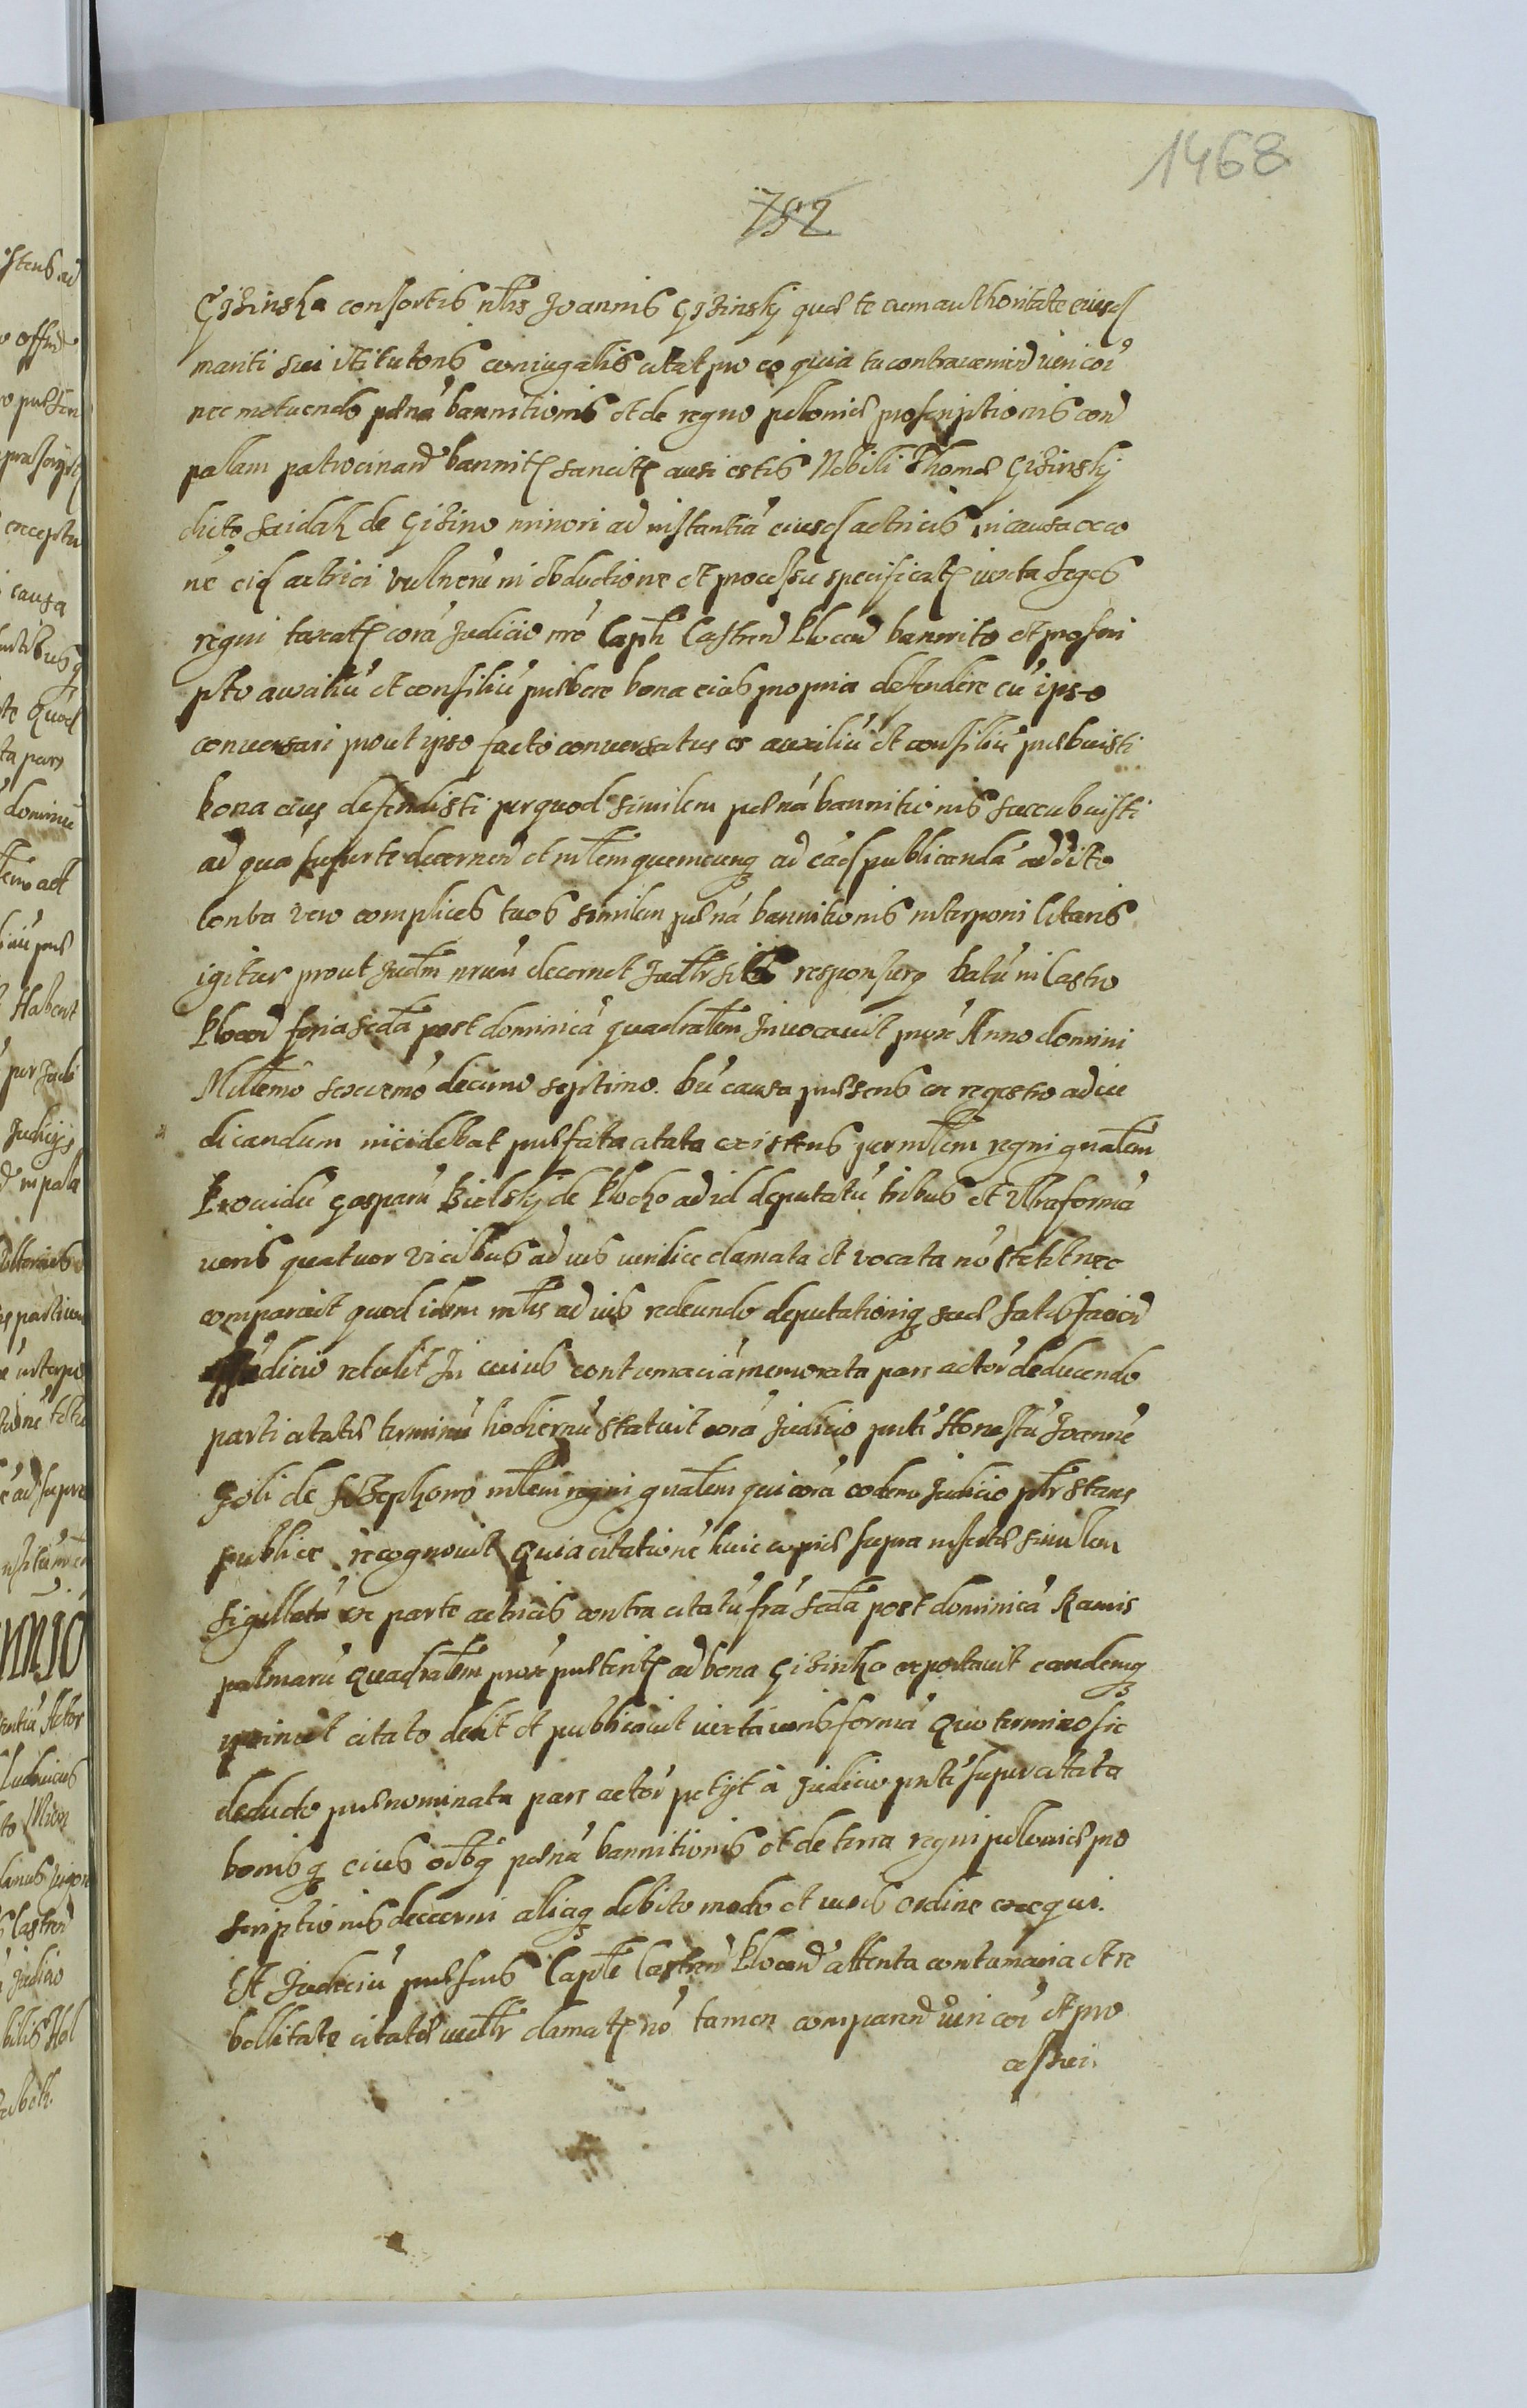 1468
752
Giżinska consortis nlis Joannis Giżinskj quae te cum authoritate eiusd
mariti sui et tutoris coniugalis citat pro eo quia tu contraveniend iuri coi
nec metuendo paena bannitionis et de regno poloniae proscriptionis con
palam patrocinand bannit sancit ausi estis Nobili Thomae Giżinskj
dicto Saidak de Giżino minori ad instantia eiusd actricis in causa occo
ne eid actrici vulneru in obductione et processu specificat iuxta leges
regni taxat cora Judicio nro Capli Castren Plocen bannito et proscri
pto auxiliu et consiliu praebere bona eius propria defendere cu ipso
conversari prout ipso facto conversatus es auxiliu et consiliu praebuisti
bona eius defendisti per quod similem paena bannitionis succubuisti
ad qua super te decernend et mlem quemcunq ad ead publicanda addito
contra vero complices tuos similem paena bannitionis interponi citaris
igitur prout Judm nrum decernet Judlr sibi responsurq Datu in Castro
Plocen feria scda post dominica quadralem Invocavit prox Anno domini
Millemo sexcemo decimo septimo. Du causa praesens ex regestro ad iu
dicandum incidebat praefata citata existens per mlem regni gnalem
Providu Gasparu Bielskj de Plocko ad id deputatu tribus et Ultra forma
iuris quatuor vicibus ad ius iuridice clamata et vocata no stetit nec
comparuit quod idem mlis ad ius redeundo deputationiq suae satisfaciend
Judicio retulit In cuius contumacia memorata pars actor deducendo
parti citatae terminu hodiernu statuit cora Judicio pnti Honestu Joanne
de mlem regni gnalem qui cora eodem Judicio plr stans
publice recognovit Quia citatione huic copiae supra insertae similem
sigillata ex parte actricis contra citatu fra scda post dominica Ramis
palmaru Quadralem prox praeterit ad bona Giżinko exportavit eandemq
citato dedit et publicavit iuxta iuris forma Quo termino sic
deducto praenominata pars actor petijt a Judicio pnti super citata
bonisq eius oibq paena bannitionis et de terra regni poloniae pro
scriptionis decerni aliaq debito modo et iuris ordine exequi.
Et Judiciu praesens Caple Castren Plocen attenta contumacia et re
bellitate citatae iudlr clamat no tamen comparend iuri coi et pro
cessui